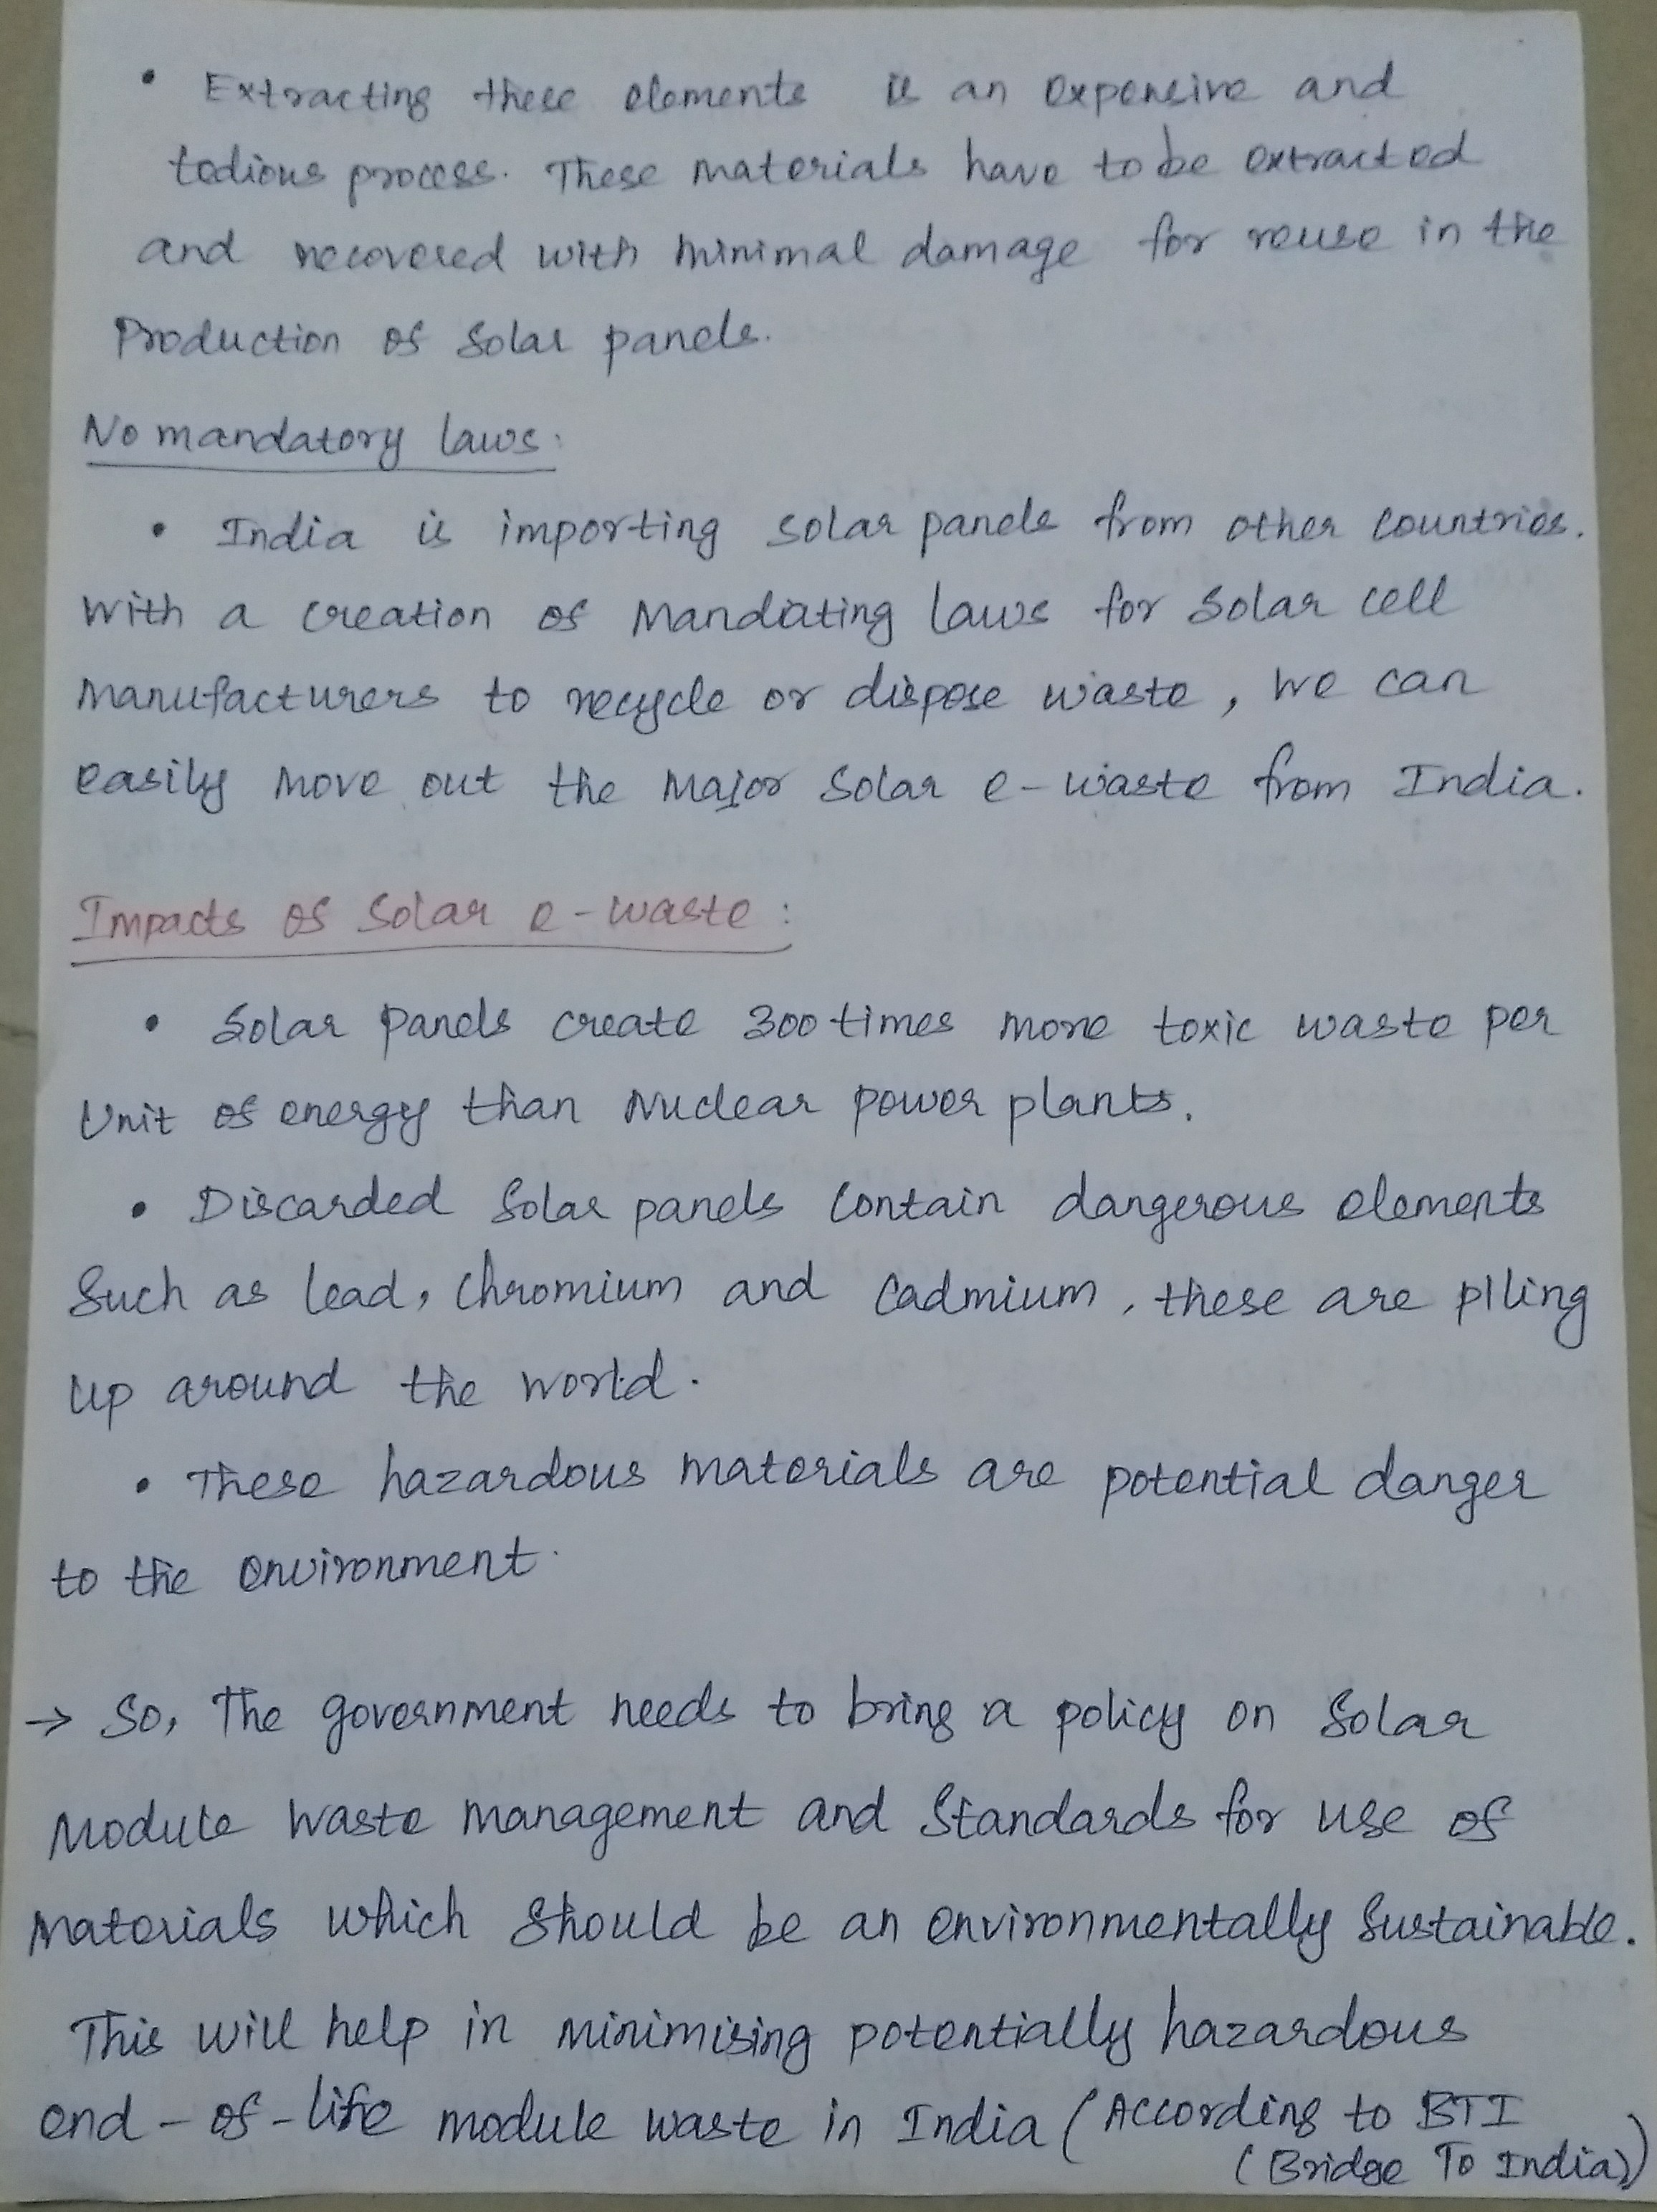 • Extracting these elements is an expensive and
tedious process. These materials have to be extracted
and recovered with minimal damage for reuse in the
Production of Solar panels.
No mandatory laws:
• India is importing solar panels from other countries.
With a creation of Mandating laws for solar cell
manufacturers to recycle or dispose waste, we can
easily move out the major solar e-waste from India.
Impacts of Solar e-waste:
• Solar panels create 300 times more toxic waste per
Unit of energy than Nuclear power plants.
• Discarded Solar panels contain dangerous elements
Such as lead, chromium and cadmium, these are piling
up around the world.
• These hazardous materials are potential danger
to the environment.
→ So, The government needs to bring a policy on Solar
Module waste management and Standards for use of
materials which should be an environmentally Sustainable.
This will help in minimising potentially hazardous
end-of-life module waste in India (According to BTI
(Bridge To India))